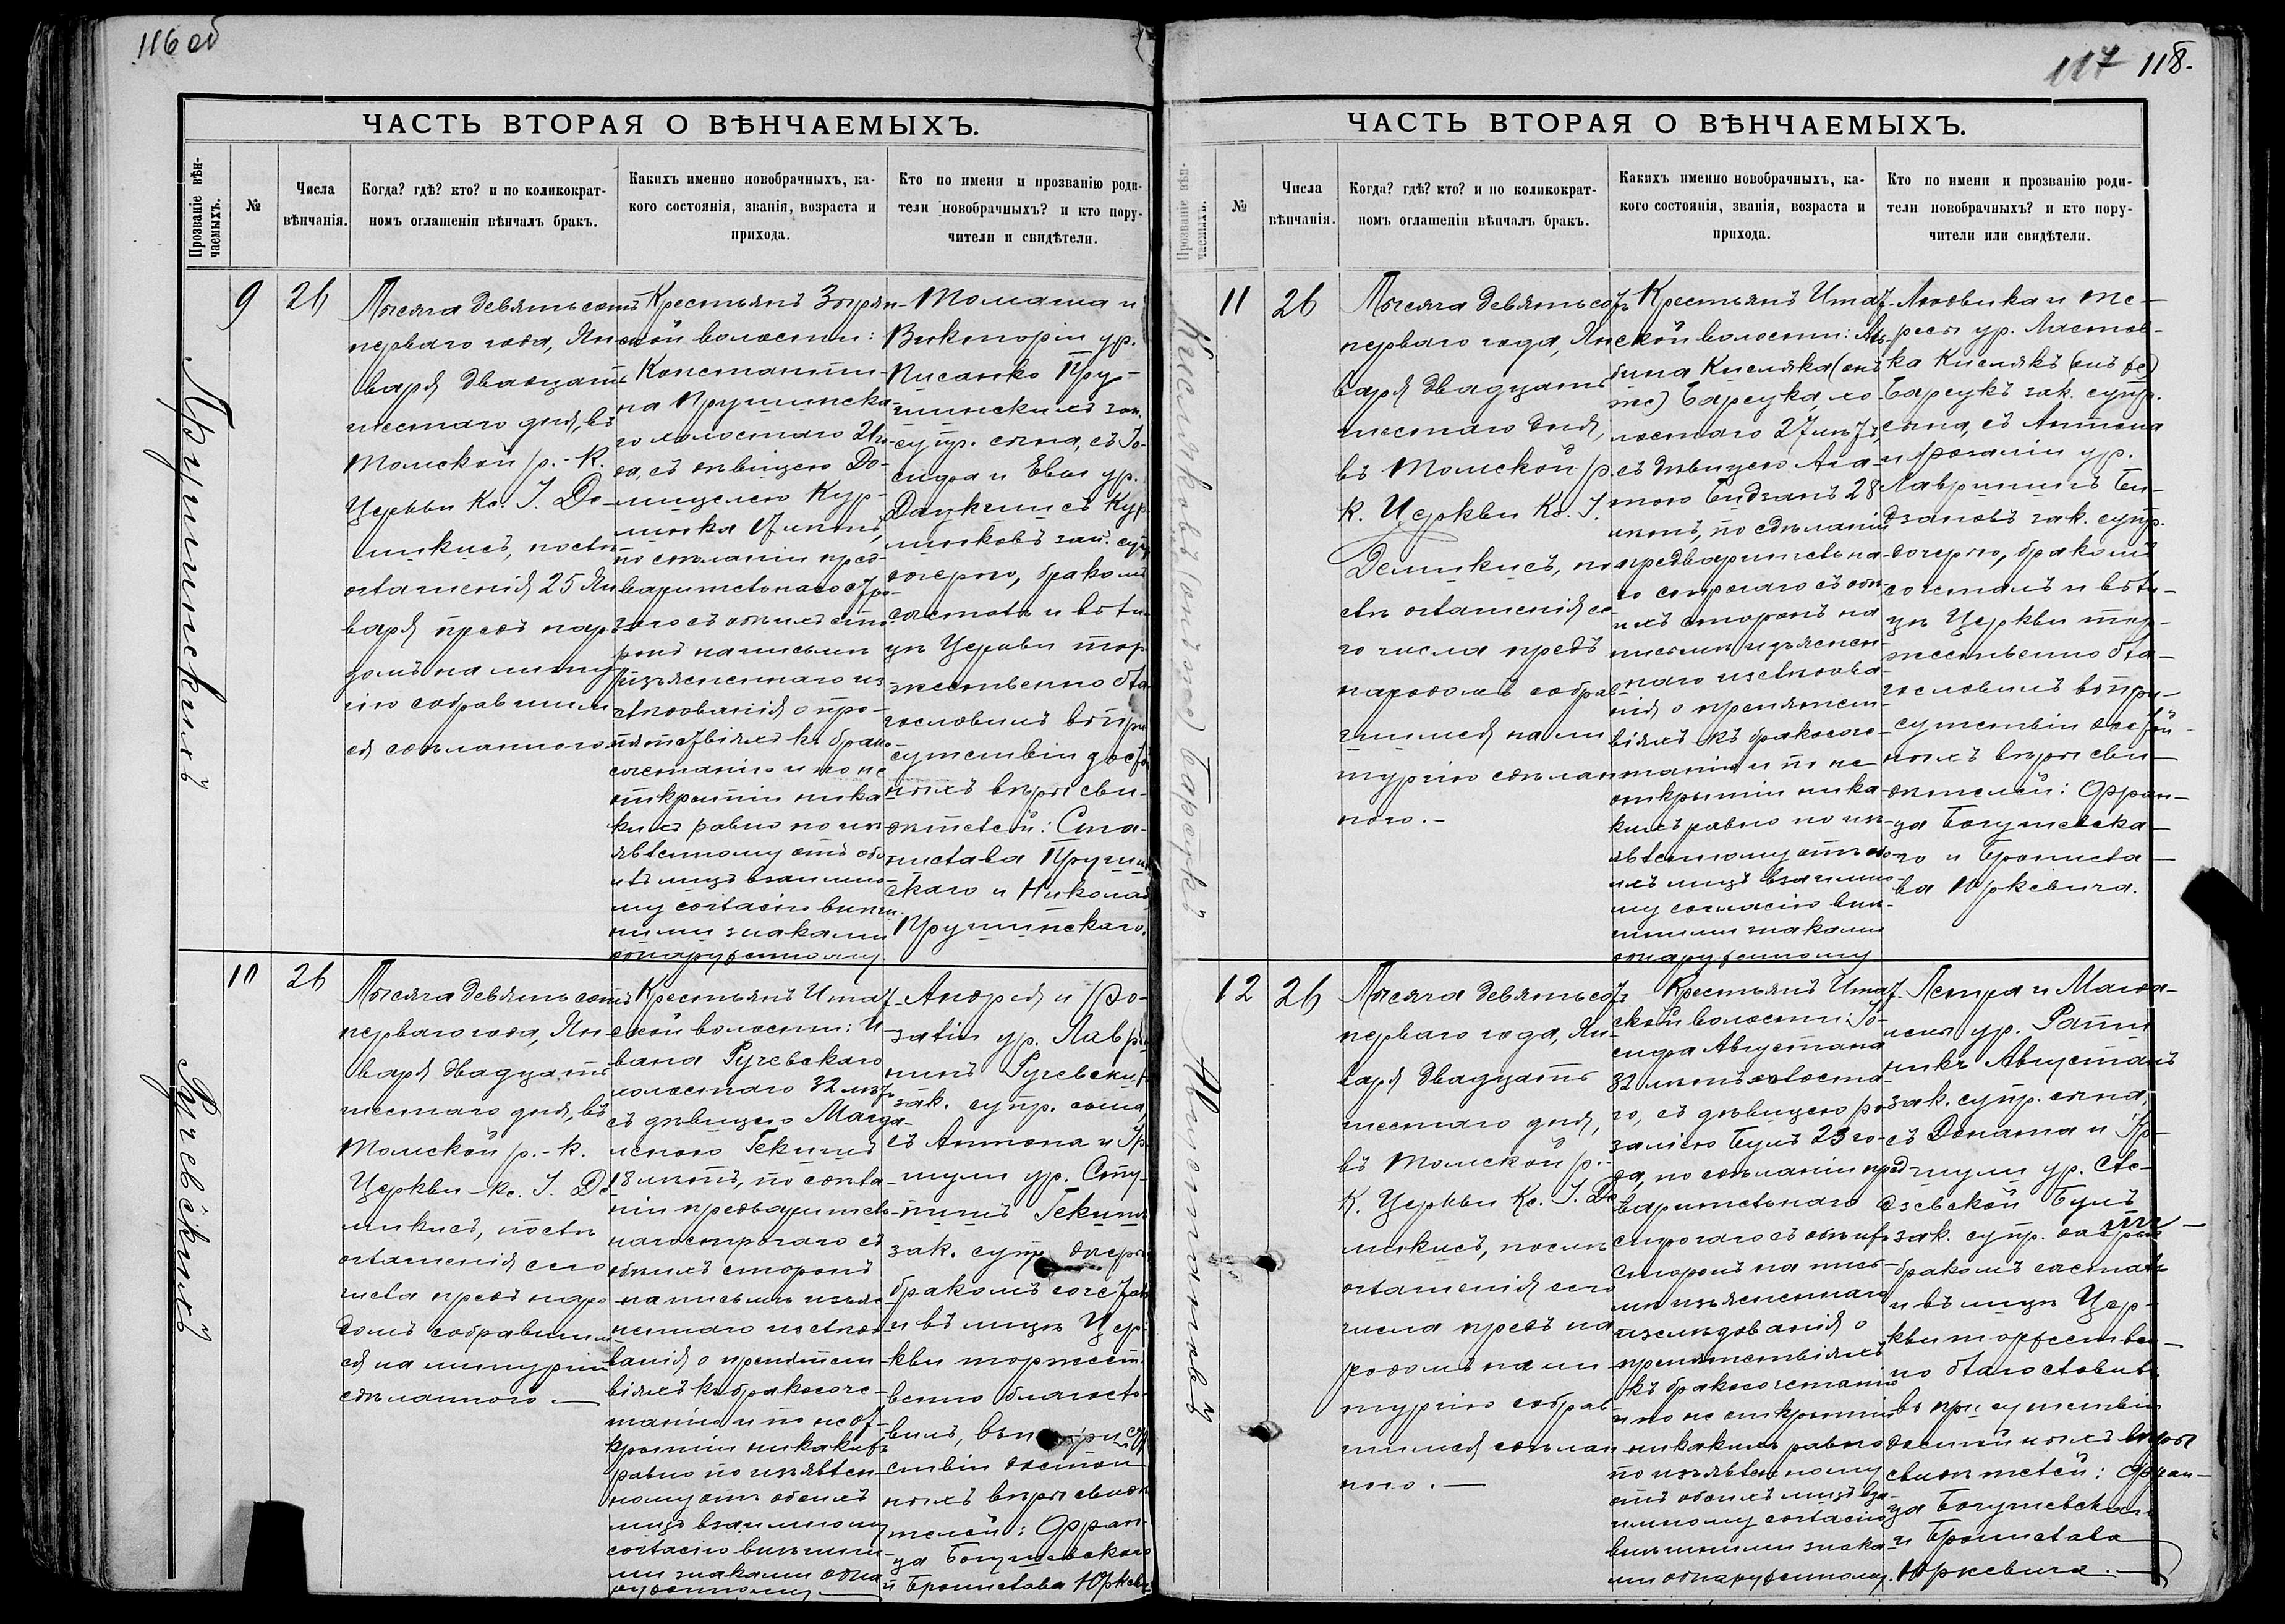 116 об
ЧАСТЬ ВТОРАЯ О ВѢНЧАЕМЫХЪ.
Прозваніе вѣн-
чаемыхъ.
№
Числа
вѣнчанія.
Когда? гдѣ? кто? и по коликократ-
номъ оглашеніи вѣнчалъ бракъ.
Какихъ именно новобрачныхъ, ка-
кого состоянія, званія, возраста и
прихода.
Кто по имени и прозванію роди-
тели новобрачныхъ? и кто пору-
чители и свидѣтели.
Прушинскихъ
9
26
Тысяча девятьсотъ
перваго года, Ян-
варя двадцать
шестаго дня, въ
Томской р.-К.
Церкви Кс. І. Де-
микисъ, послѣ
оглашенія 25 Ян
варя предъ наро
домъ на литур
гію собравшим
ся сдѣланного.
Крестьянъ Зырян-
ской волости:
Константи-
на Прушинска
го холостаго 21 го-
да, съ дѣвицею До-
мицелею Кур-
по сдѣланіи пред-
варительнаго стро
гаго съ обѣихъ сто
ронъ на письмѣ
изъясненнаго из
слѣдованія о пре-
пятствіяхъ къ брако
сочетанію и по не
открытіи ника
кихъ равно по из
явленному отъ обо
ихъ лицъ взаимно
му согласію внѣш
ними знаками
обнаруженному
Томаша и
Викторіи ур.
Писанко Пру-
шинскихъ зак.
супр. сына, съ Іо-
сифа и Евы ур.
зак. супр
дочерью, бракомъ
сочеталъ и въ ли-
цѣ Церкви тор
жественно бла
гословилъ въ при
сутствіи достой
ныхъ вѣры сви-
дѣтелей: Ста-
нислава Прушин
скаго и Николая
Прушинскаго.
Ручевскихъ
10
26
Тысяча девятьсотъ
перваго года, Ян-
варя двадцать
шестаго дня, въ
Томской р.-К.
Церкви Кс. І. Де
микисъ, послѣ
оглашенія сего
числа предъ наро
домъ собравшим
ся на литургію
сдѣланного.
Крестьянъ Итат-
ской волости: И
вана Ручевскаго
холостаго 32 лѣтъ
съ дѣвицею Магда-
леною Гекишъ
18 лѣтъ, по сдѣла
ніи предваритель
наго строгаго съ
обѣихъ сторонъ
на письмѣ изъяс
неннаго изслѣдо
ванія о препятст
віяхъ къ бракосоче-
танію и по не от-
крытіи никакихъ
равно по изъявлен-
ному отъ обоихъ
лицъ взаимному
согласію внѣшни
ми знаками обна
руженному
Андрея и Ро-
заліи ур. Лавры
нишъ Ручевскихъ
зак. супр. сына
съ Антона и Ур
шули ур. Сту-
Гекишъ
зак. супр. дочерью
бракомъ сочеталъ
и въ лицѣ Цер-
кви торжест
венно благосло-
вилъ, въ присут
ствіи достой
ныхъ вѣры свидѣ
телей: Фран-
ца Богушевскаго
и Бронислава Юркевича
117 118.
ЧАСТЬ ВТОРАЯ О ВѢНЧАЕМЫХЪ.
Прозваніе вѣн-
чаемыхъ.
№
Числа
вѣнчанія.
Когда? гдѣ? кто? и по коликократ-
номъ оглашеніи вѣнчалъ бракъ.
Какихъ именно новобрачныхъ, ка-
кого состоянія, званія, возраста и
прихода.
Кто по имени и прозванію роди-
тели новобрачныхъ? и кто пору-
чители или свидѣтели.
Кисляковъ (онъ же) Барсукъ
11
26
Тысяча девятьсотъ
перваго года, Ян
варя двадцать
шестаго дня,
въ Томской р.
К. Церкви Кс. І.
Демикисъ, по
слѣ оглашенія се
го числа предъ
народомъ собрав
шимся на ли
тургію сдѣлан
ного.
Крестьянъ Итат-
ской волости: Аль-
бина Кисляка (онъ
же) Барсука, хо
лостаго 27 лѣтъ,
съ дѣвицею Ага-
тою Бидзанъ 28
лѣтъ, по сдѣланіи
предварительна
го строгаго съ обѣ-
ихъ сторонъ на
письмѣ изъяснен
наго изслѣдова
нія о препятст
віяхъ къ бракосоче-
танію и по не
открытіи ника
кихъ равно по изъ
явленному отъ обо
ихъ лицъ взаимно
му согласію внѣ-
шними знаками
обнаруженному
Людвика и Те-
ресы ур. Ластов-
ка Кислякъ (онъ же)
Барсукъ зак. супр.
сына, съ Антона
и Розаліи ур.
Лавринишъ Бид
зановъ зак. супр.
дочерью, бракомъ
сочеталъ и въ ли-
цѣ Церкви тор-
жественно бла-
гословилъ въ при-
сутствіи достой
ныхъ вѣры сви-
дѣтелей: Фран-
ца Богушевска-
го и Бронисла-
ва Юркевича.
Августановъ
12
26
Тысяча девятьсотъ
перваго года, Ян-
варя двадцать
шестаго дня,
въ Томской р.-
К. Церкви Кс. І. Де
микисъ, послѣ
оглашенія сего
числа предъ на
родомъ на ли
тургію собрав
шимся сдѣлан
ного.
Крестьянъ Итат-
ской волости: Іо-
сифа Августана
32 лѣтъ холоста-
го, съ дѣвицею Ро
заліею Буль 23 го-
да, по сдѣланіи пред
варительнаго
строгаго съ обѣихъ
сторонъ на пись-
мѣ изъясненнаго
изслѣдованія о
препятствіяхъ
къ бракосочетанію
и по не открытіи
никакихъ равно
по изъявленному
отъ обоихъ лицъ вза
имному согласію
внѣшними знака
ми обнаруженному.
Петра и Магда-
лены ур.
Августанъ
зак. супр. сына,
съ Доната и Ур-
шули ур.
Буль
зак. супр. дочерью
бракомъ сочеталъ
и въ лицѣ Цер-
кви торжествен-
но благословилъ
въ присутствіи
достойныхъ вѣры
свидѣтелей: Фран-
ца Богушевскаго
и Бронислава
Юркевича.